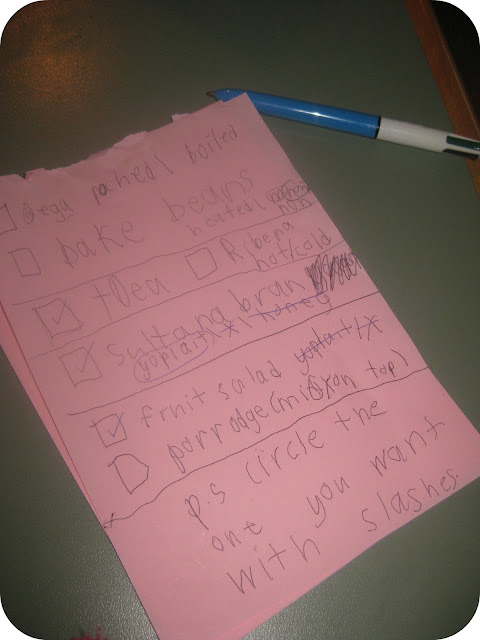 egg poched/ boiled
bake beans
heated/
tOea Ribena
hot/cold
sultana bran
yoplait/ honey
fruit salad yoplait/
porrodge(milk on top)
p.s circle the
one you want
with slashes.